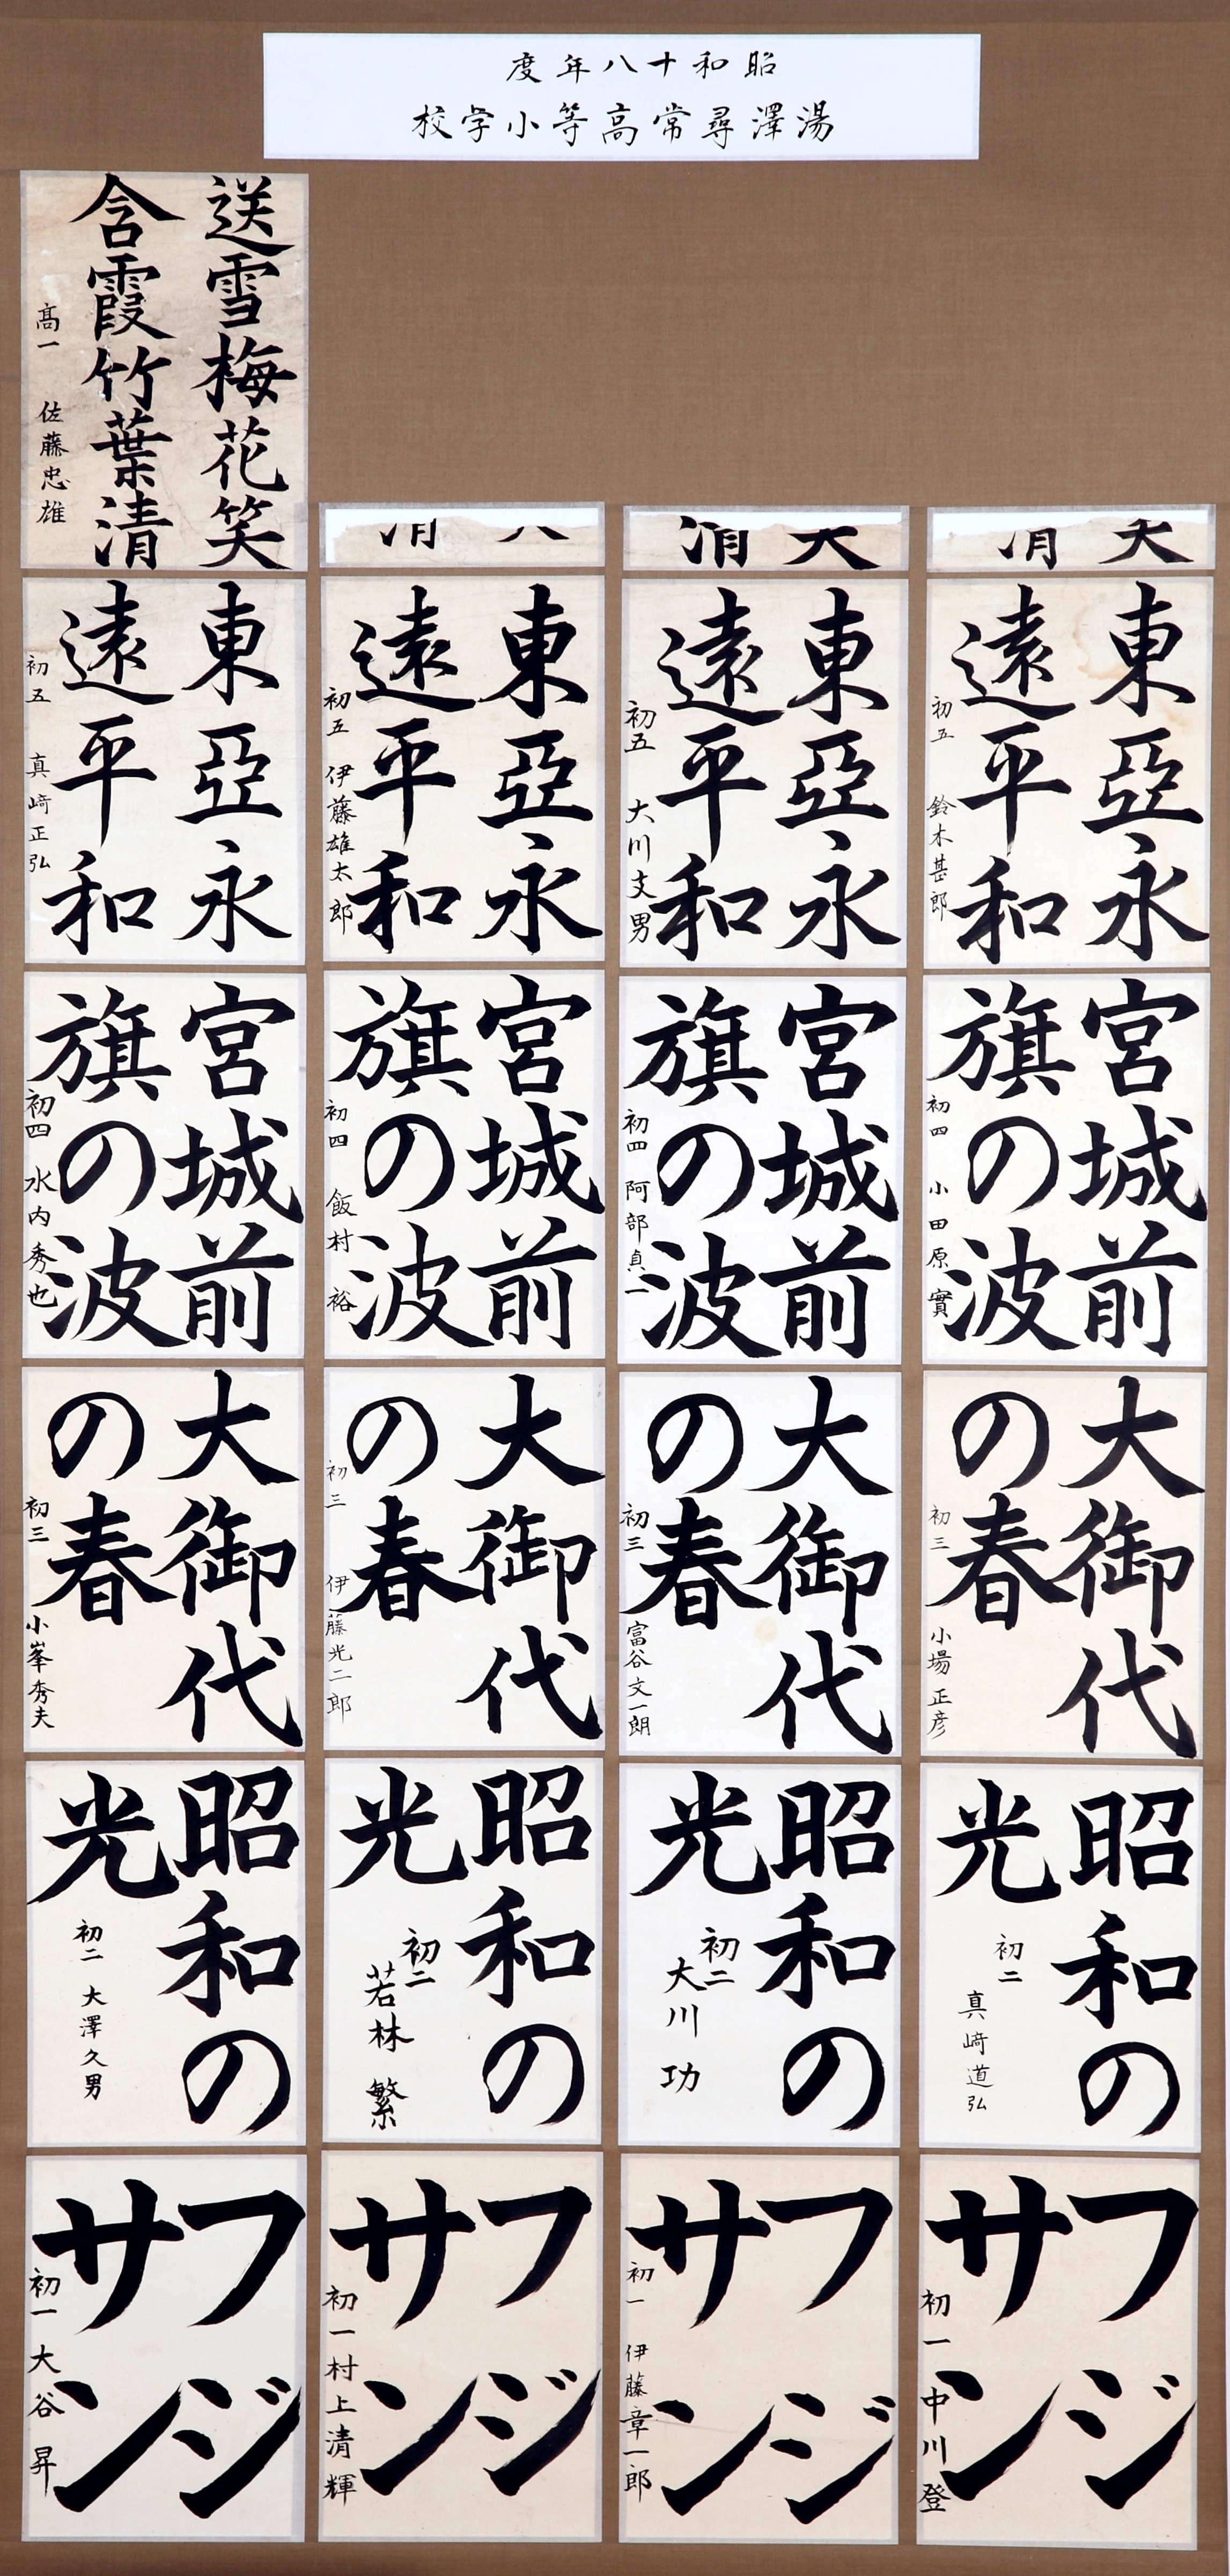 昭和十八年度
湯澤尋常高等小学校
送雪梅花笑
含霞竹葉清
高一 佐藤忠雄
東亞永
遠平和
初五 鈴木甚郎
東亞永
遠平和
初五 大川文男
東亞永
遠平和
初五 伊藤雄太郎
東亞永
遠平和
初五 真﨑正弘
宮城前
旗の波
初四 小田原實
宮城前
旗の波
初四 阿部貞一
宮城前
旗の波
初四 飯村裕
宮城前
旗の波
初四 水内秀也
大御代
の春
初三 小場正彦
大御代
の春
初三 富谷文一朗
大御代
の春
初三 伊藤光二郎
大御代
の春
初三 小峯秀夫
昭和の
光
初二
真﨑道弘
昭和の
光
初二
大川功
昭和の
光
初二
若林繁
昭和の
光
初二 大澤久男
フジ
サン
初一 中川登
フジ
サン
初一 伊藤章一郎
フジ
サン
初一 村上清輝
フジ
サン
初一 大谷昇